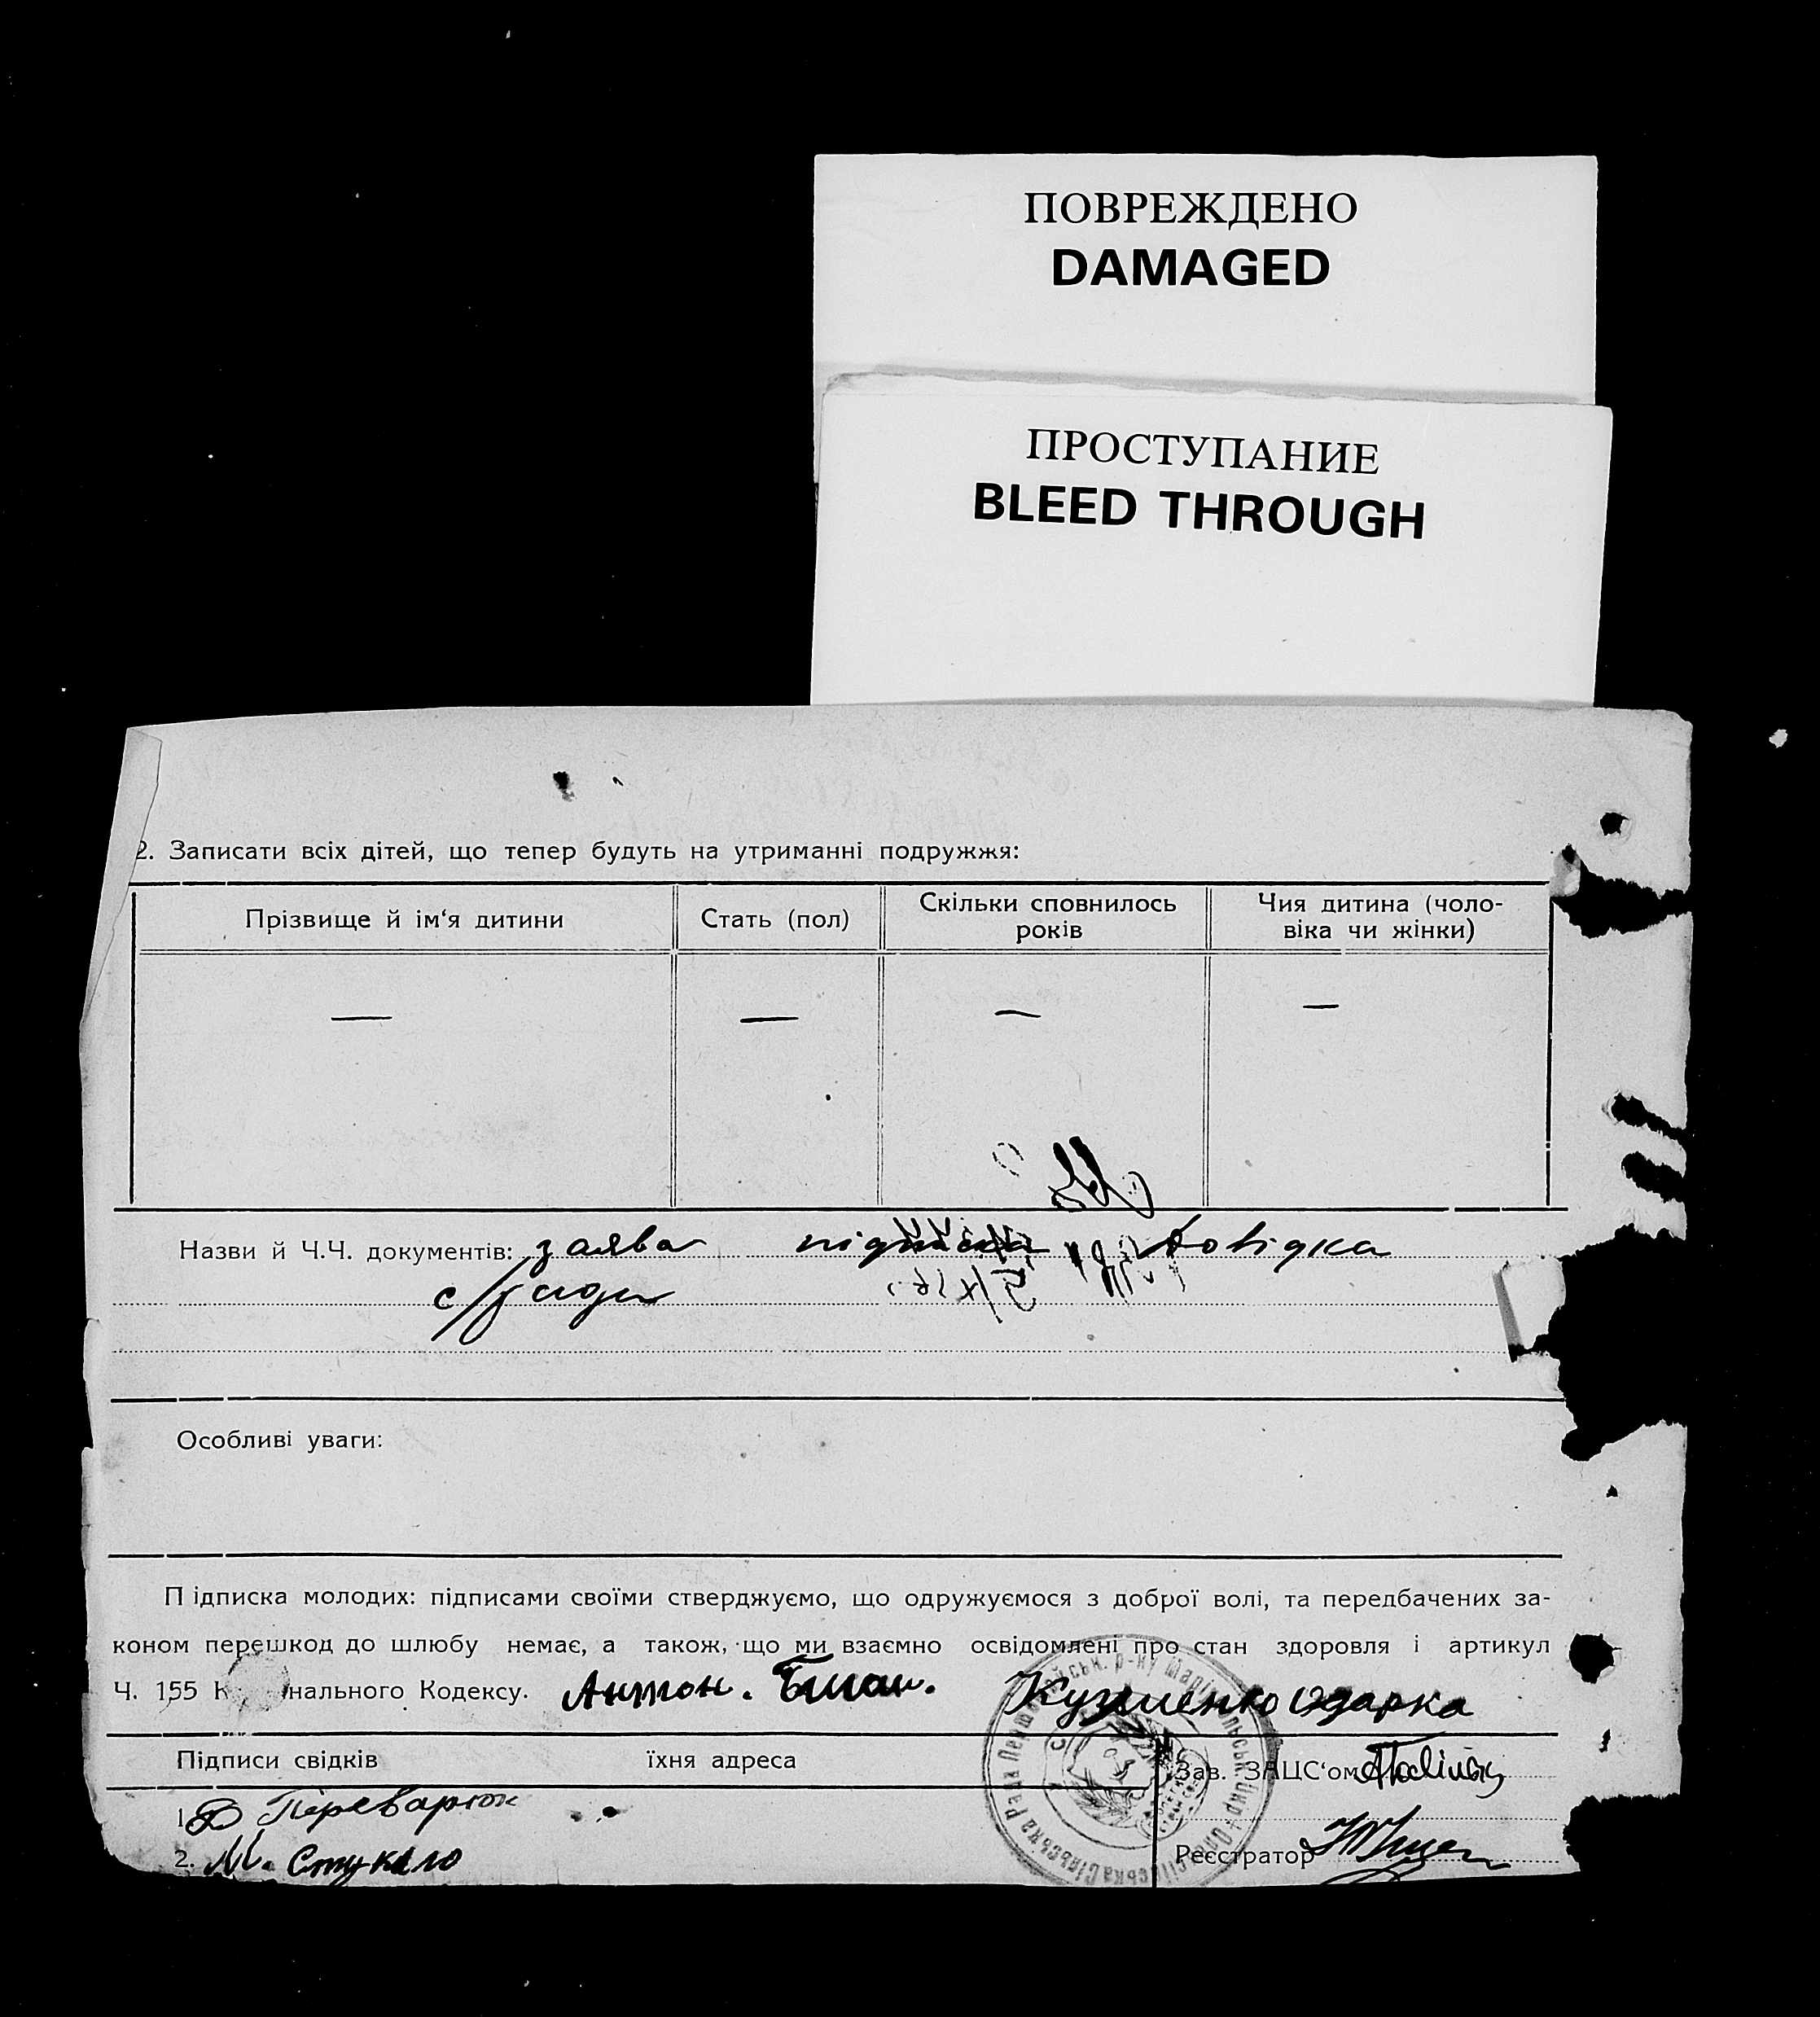 ПОВРЕЖДЕНО
DAMAGED
ПРОСТУПАНИЕ
BLEED THROUGH
2. Записати всіх дітей, що тепер будуть на утриманні подружжя:
Прізвище й ім‘я дитини
Стать (пол)
Скільки сповнилось
років
Чия дитина (чоло-
віка чи жінки)
— — — —
Назви й Ч.Ч. документів: заява підписка довідка
с/ради
Особливі уваги:
Підписка молодих: підписами своїми стверджуємо, що одружуємося з доброї волі, та передбачених за-
коном перешкод до шлюбу немає, а також, що ми взаємно освідомлені про стан здоровля і артикул
Ч. 155 К нального Кодексу. Антон. Кузменко Одарка
Підписи свідків їхня адреса
Зав. ЗАЦС‘ом
1. Переварюк
2. М. Стукало
Реєстратор